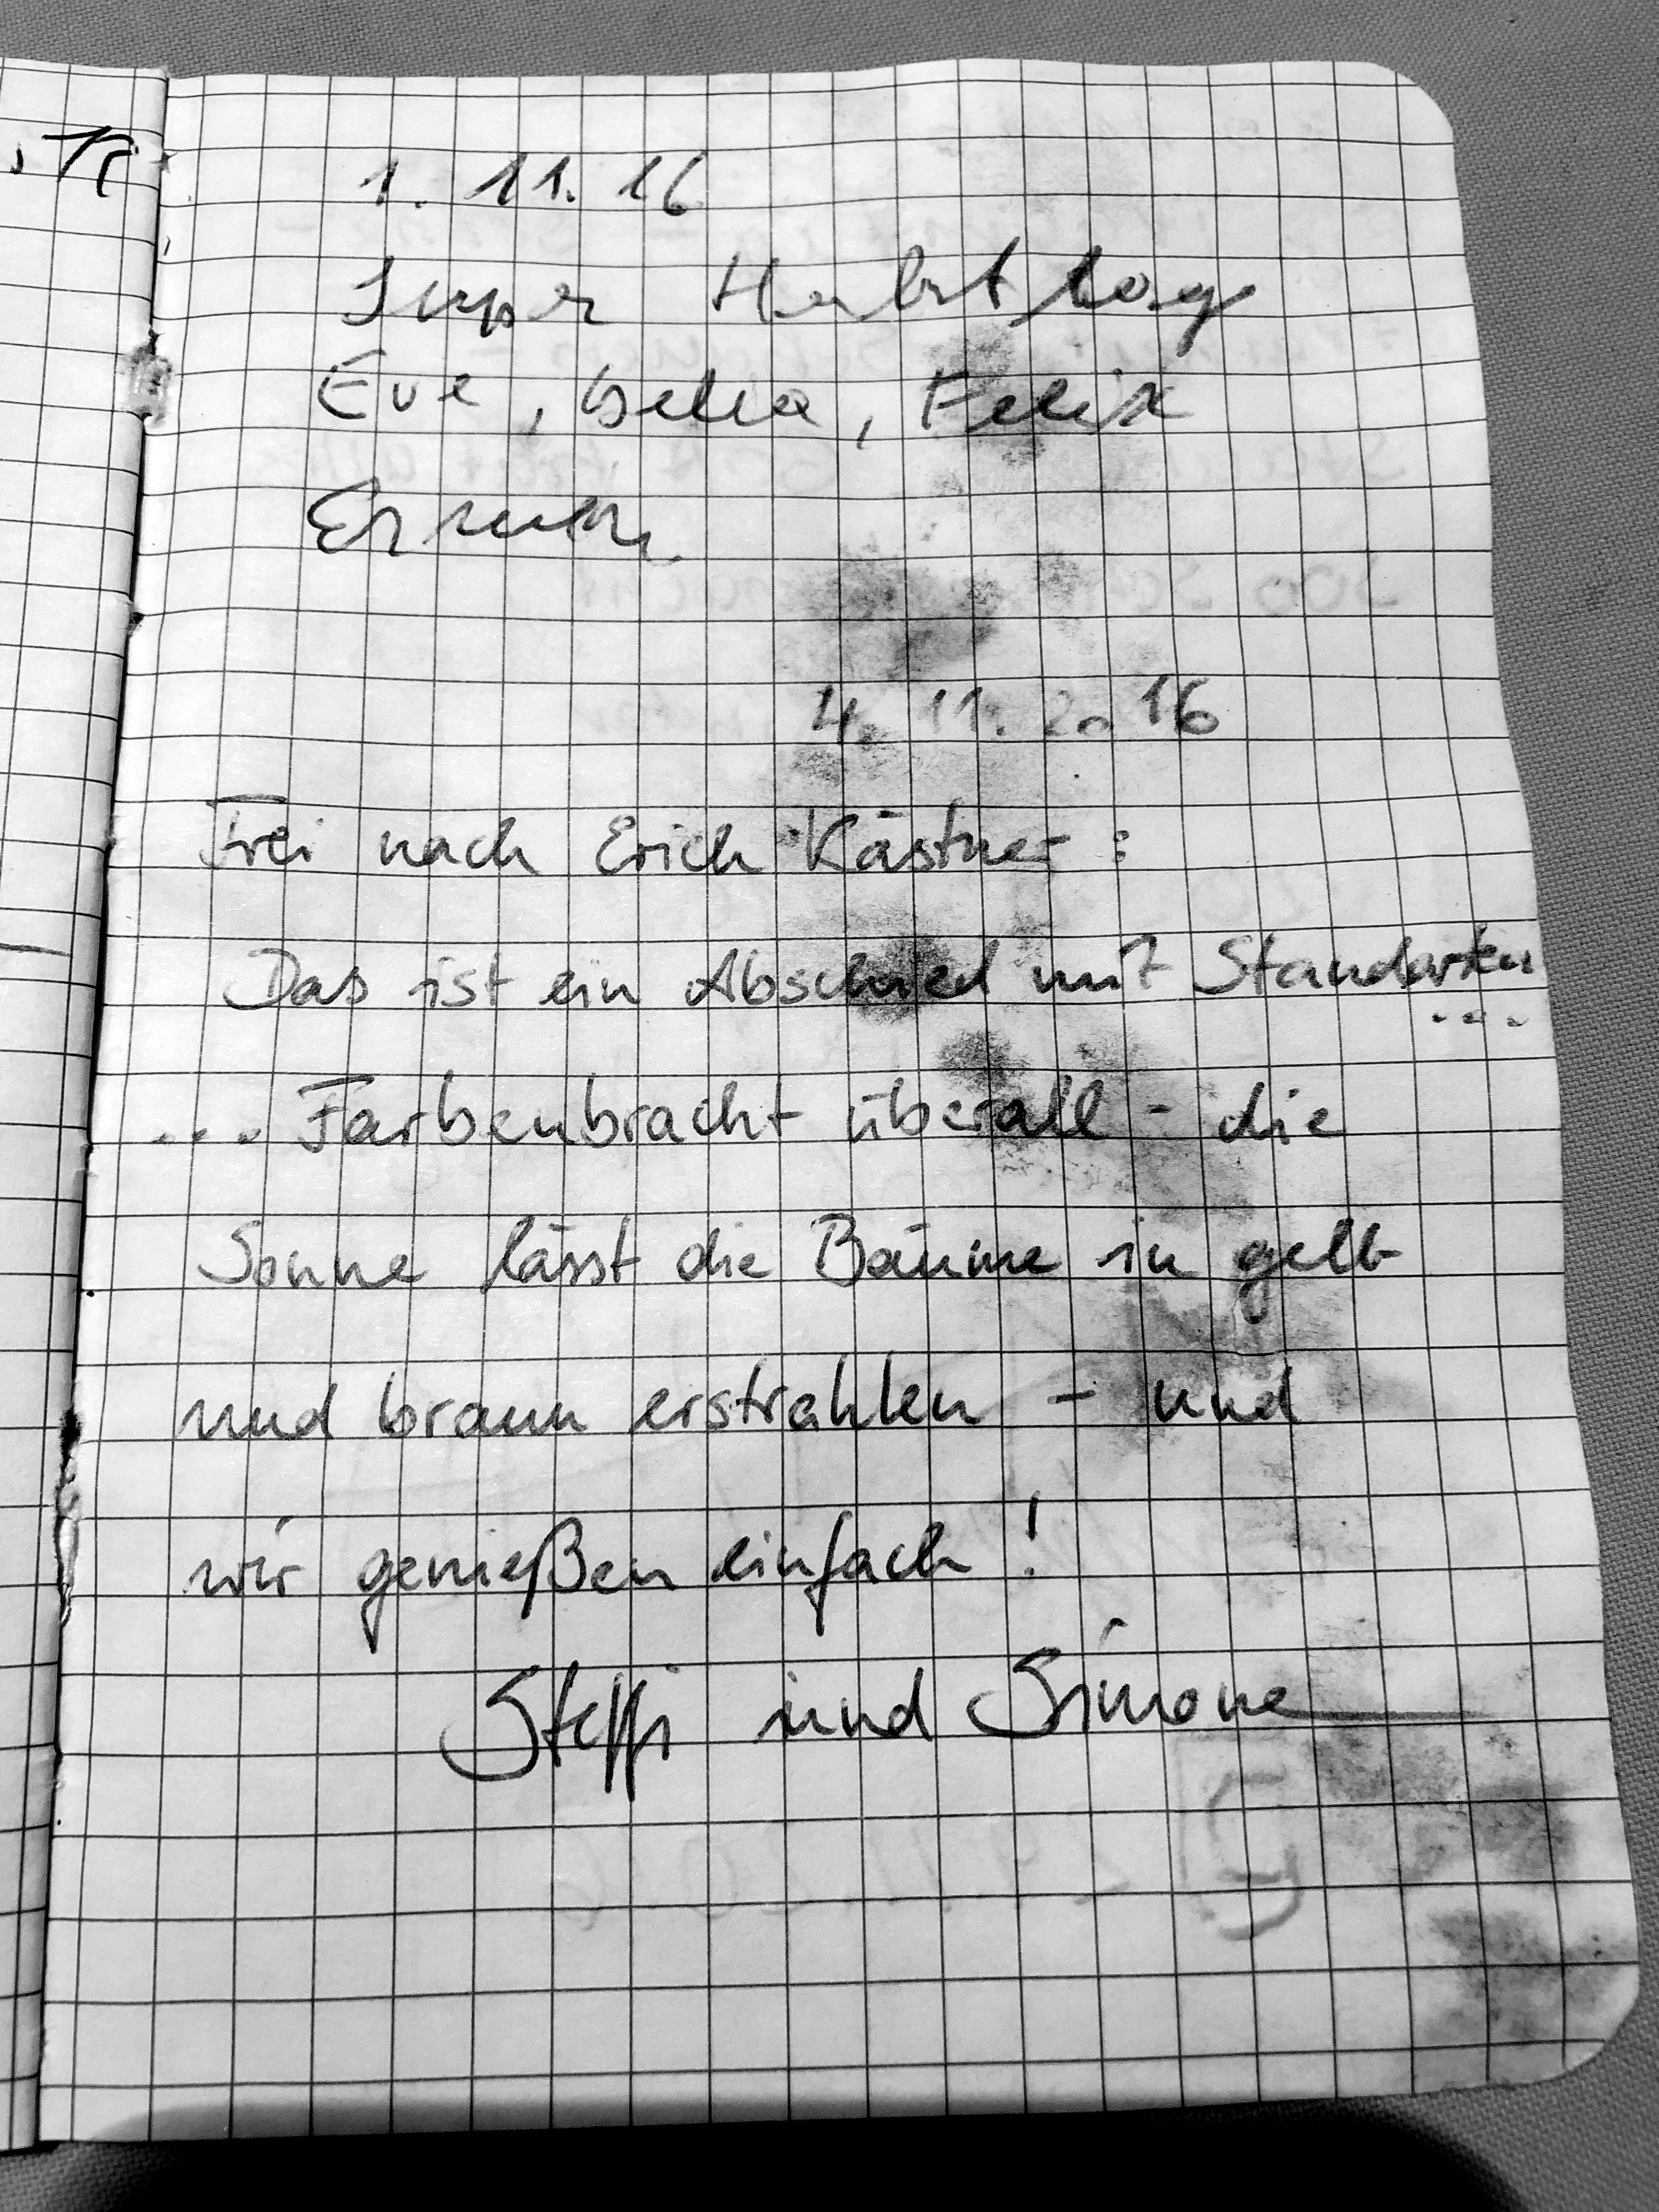 1. 11. 16
Super Herbsttag
Eve, , Felix
4. 11. 2016
Frei nach Erich Kästner :
Das ist ein Abschied mit Standarten
...
... Farbenbracht überall - die
Sonne lässt die Bäume in gelb
und braun erstrahlen - und
wir genießen einfach !
Steffi und Simone